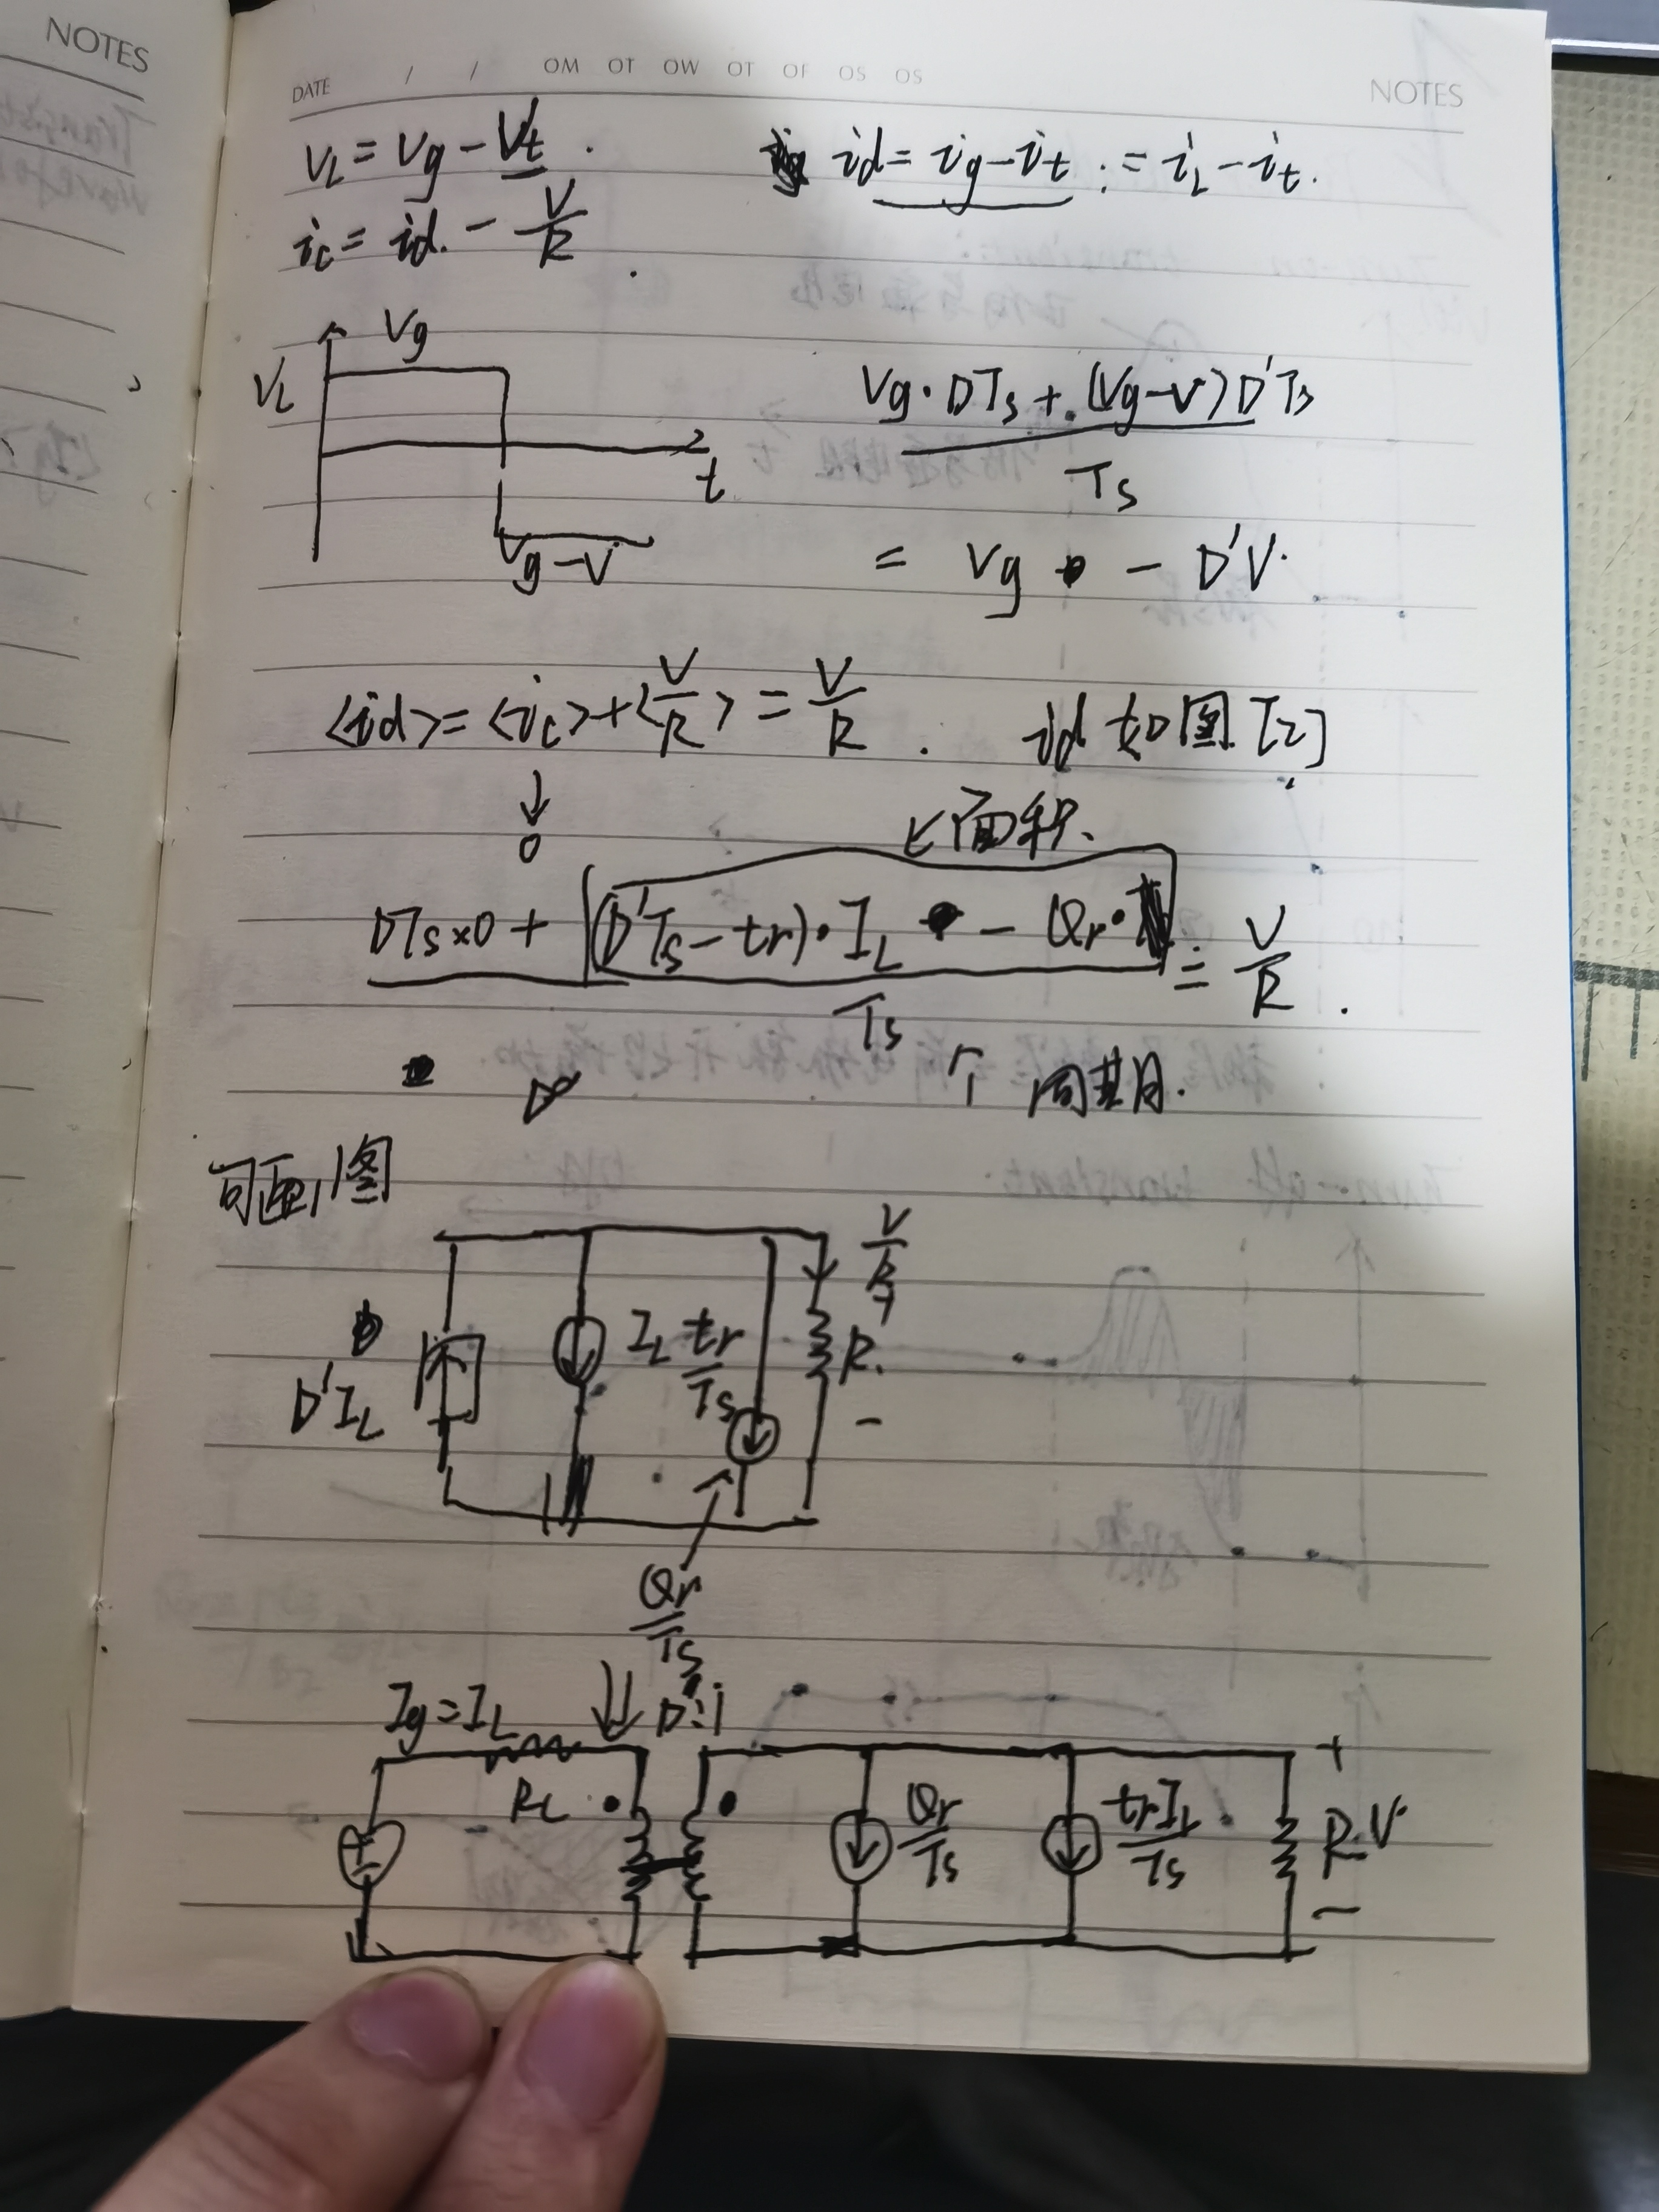 NOTES
DATE / / OM OT OW OT OF OS OS NOTES
VL = Vg - Vt .
id = ig - it . = iL - it .
ic = id . - V/R .
Vg
VL
t
Vg-V
Vg · DTs + (Vg-V) D'Ts
Ts
= Vg - D'V .
<id> = <ic> + <V/R> = V/R . id 如图 [2]
↓
0
↙面积、
DTs×0 + (D'Ts - tr) · IL - Qr · = V/R .
Ts
↑ 周期.
可画图
V/R
+
D'IL
IL tr/Ts
R.
-
Qr/Ts
Ig = IL
D':1
RL
Qr/Ts
trIL/Ts
+
R V
-